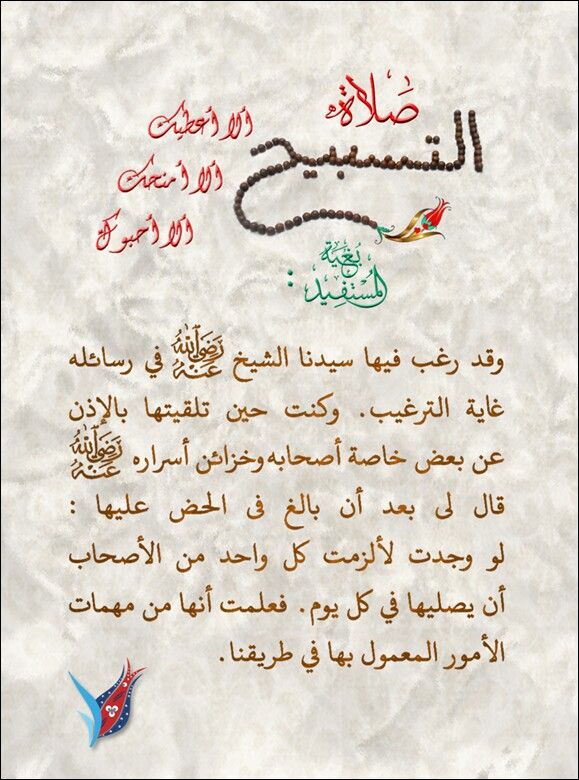 صلاة
التسبيح
ألا أعطيك
ألا أمنحك
ألا أحبوك
بُغية
المُستفِيد :
وقد رغب فيها سيدنا الشيخ رَضِيَ اللهُ عَنْهُ في رسائله
غاية الترغيب. وكنت حين تلقيتها بالإذن
عن بعض خاصة أصحابه وخزائن أسراره رَضِيَ اللهُ عَنْهُ
قال لى بعد أن بالغ فى الحض عليها :
لو وجدت لألزمت كل واحد من الأصحاب
أن يصليها في كل يوم. فعلمت أنها من مهمات
الأمور المعمول بها في طريقنا.